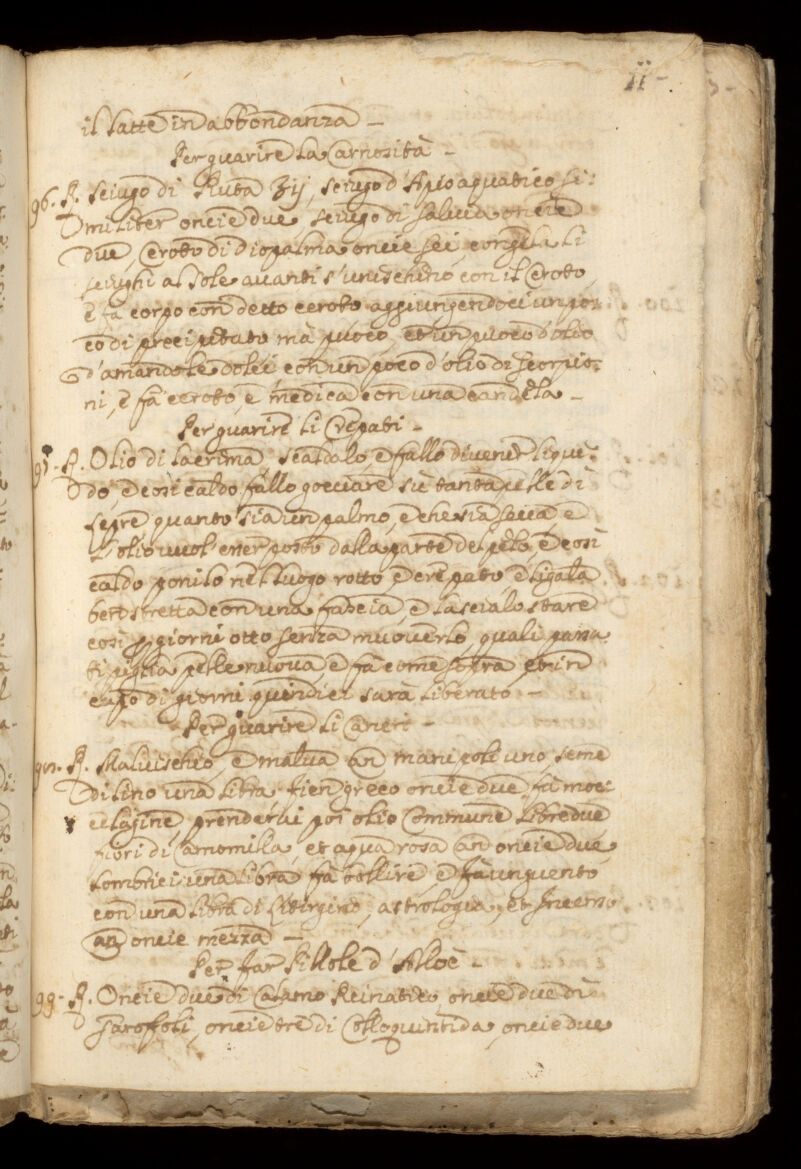 11 -
il latte in abbondanza -
Per guarire la Carnosità -
96. R. Sciugo di Ruta ʒij, sciugo d'Apio aquatico si:
militer oncie due, sciugo di salvia oncie
due, Ceroto di diopalma oncie sei, congela li
sciughi al sole avanti s'unischino con il Ceroto,
e fa corpo con detto ceroto aggiungendoci un po:
co di precipitato mà puoco, et un puoco d'olio
d'amandole dolci con un poco d'olio di scorpio:
ni, e fa ceroto, e medica con una candela -
Per guarire li Crepati -
97. R. Olio di lacrima, scaldalo, e fallo divenir liqui:
do, e così caldo fallo gocciare sù tanta pelle di
lepre quanto sia un palmo, e che sia secca, e
l'olio vuol esser posto dalla parte del pelo, e così
caldo ponilo nel luogo rotto e crepato, e ligala
ben stretta con una fascia, e lascialo stare
così per giorni otto senza muoverlo, quali passa
ti piglia pelle nuova, e fa come sopra, et in
capo di giorni quindici sarà liberato -
Per guarire li Cancri -
98. R. Malvischio, e malva an manipoli uno, seme
di lino una libra, fien greco oncie due, fà moc:
cilagine, prenderai poi olio Commune libre due
fiori di Camomilla, et aqua rosa an oncie due
lombrici una libra fà bollire, e fà unguento
con una libra di Litirgirio, astrologia, et Incenso
an oncie mezza -
Per far Pillole d'Aloè -
99. R. Oncie due di Calamo Reinatico, oncie due di
Garofoli, oncie tre di Colloquintida, oncie due